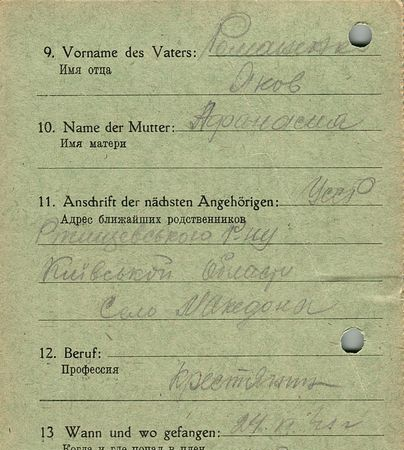 9. Vorname des Vaters: Ромашенко
Имя отца
Яков
10. Name der Mutter: Афанасия
Имя матери
11. Anschrift der nächsten Angehörigen:
Адрес ближайших родственников
Ржищевського р-ну
Київської області
Село Македони
12. Beruf:
Профессия
крестянин
13 Wann und wo gefangen:
Когда и где попал в плен